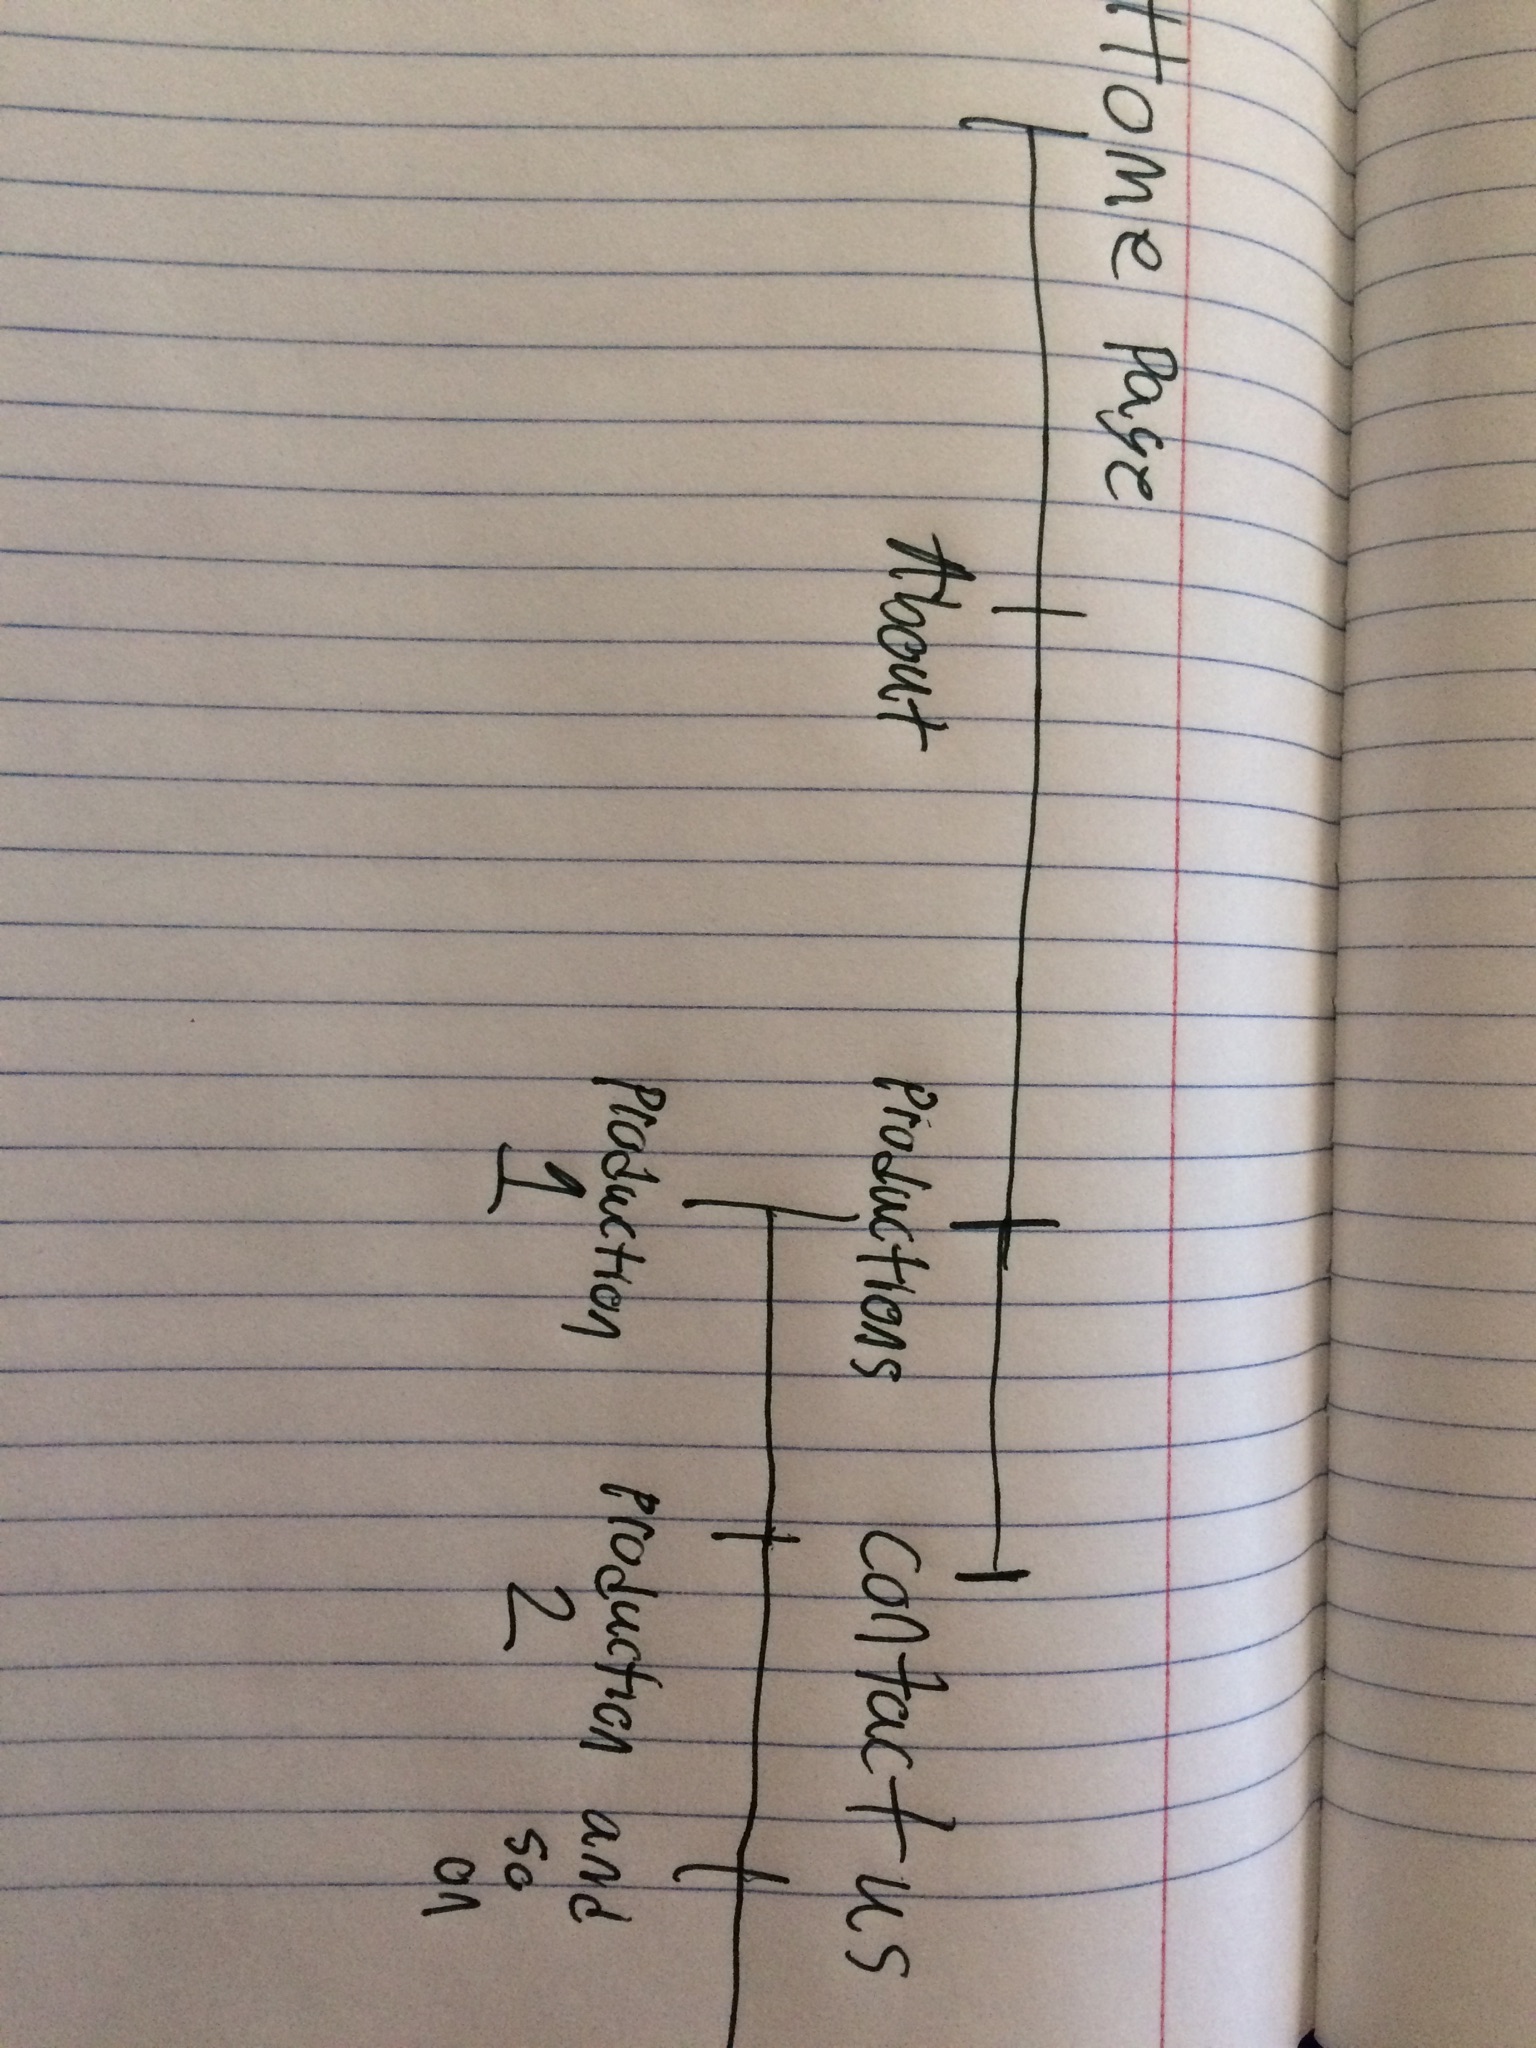 Home Page
About
Productions
Contact us
Production
1
Production
2
and
so
on